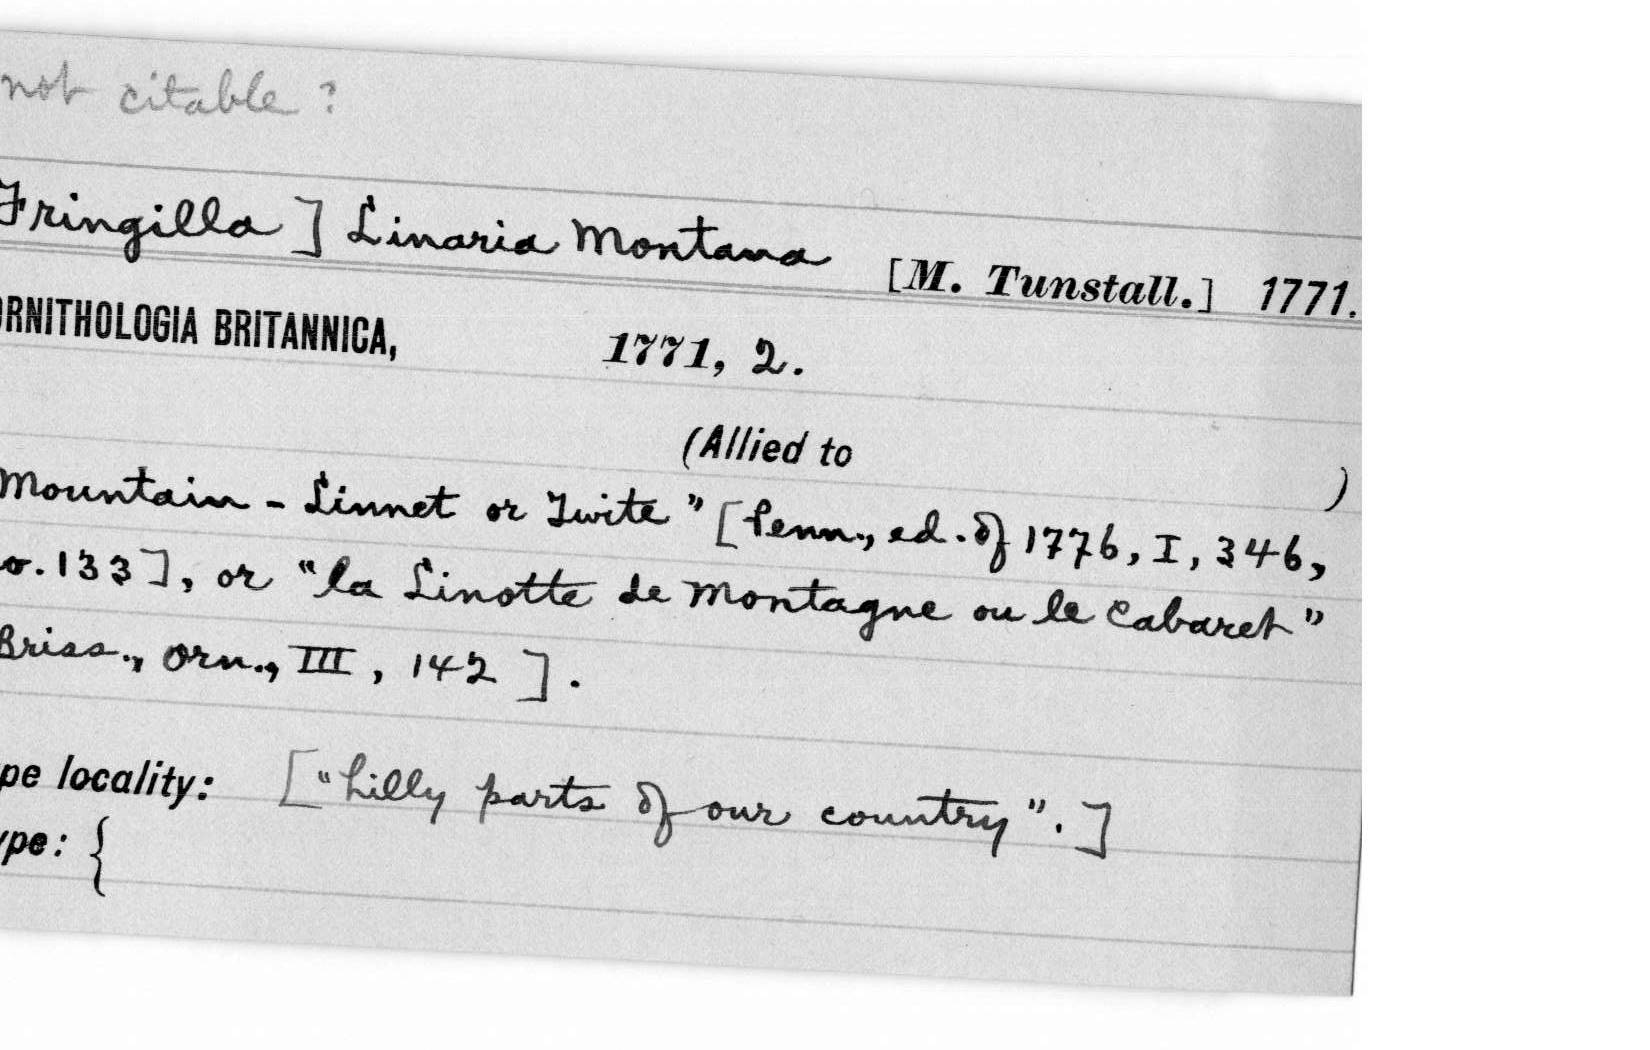 not citable ?
Fringilla ] Linaria Montana [M. Tunstall.] 1771.
ORNITHOLOGIA BRITANNICA, 1771, 2.
(Allied to )
Mountain - Linnet or Twite" [Penn., ed. of 1776, I, 346,
o. 133], or "la Linotte de Montagne ou le Cabaret"
Briss., Orn., III, 142 ].
pe locality: ["hilly parts of our country".]
ype: {